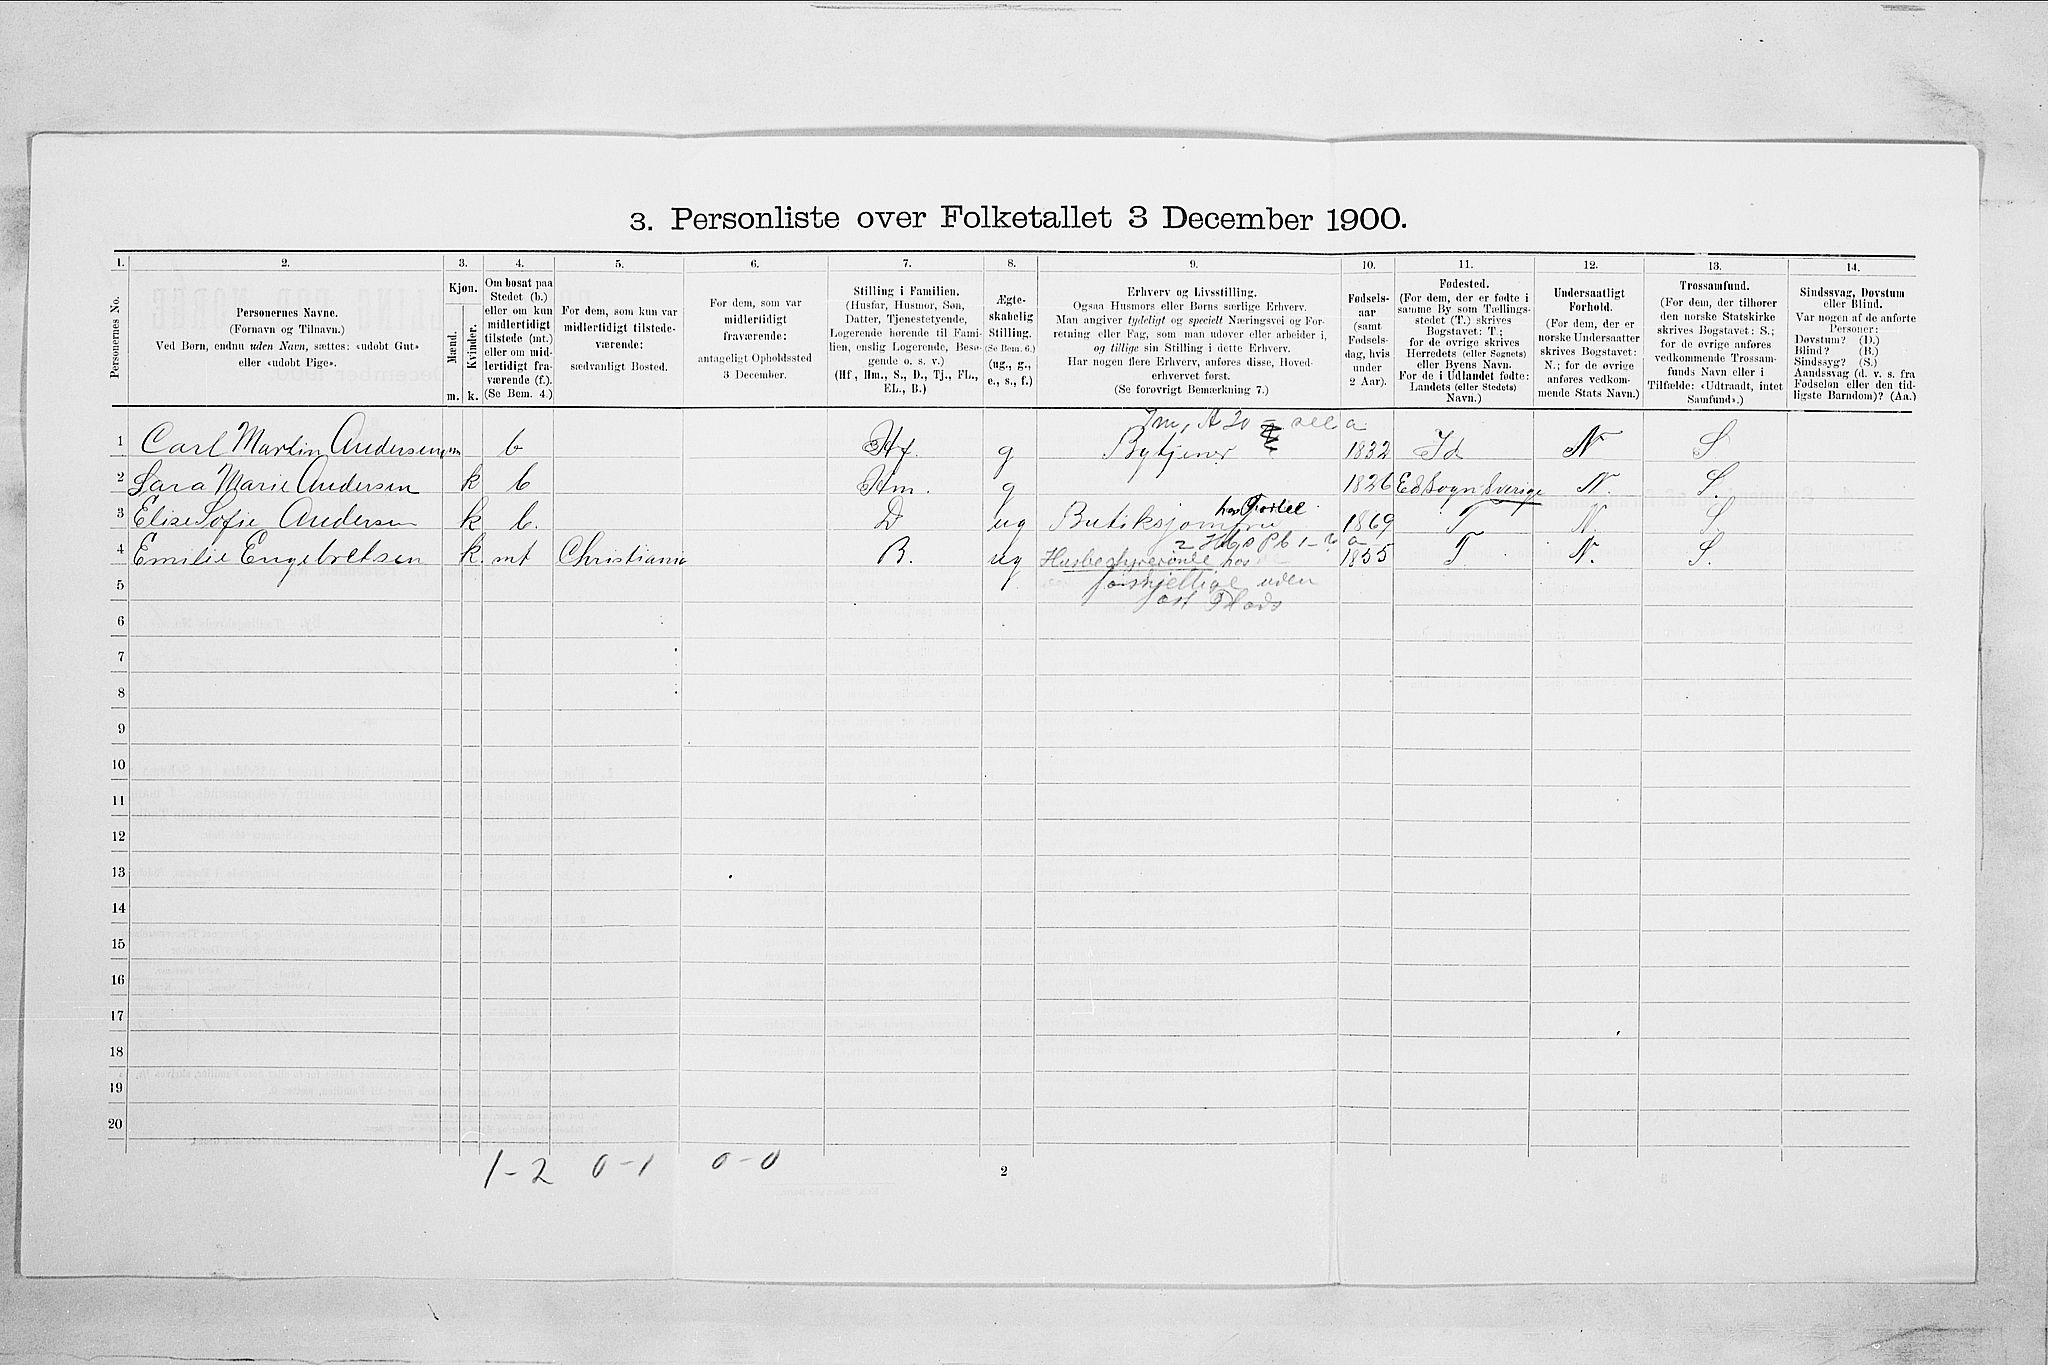 3. Personliste over Folketallet 3 December 1900.
1. 2. 3. 4. 5. 6. 7. 8. 9. 10. 11. 12. 13. 14.
Personernes No.
Personernes Navne.
(Fornavn og Tilnavn.)
Ved Børn, endnu uden Navn, sættes: «udøbt Gut»
eller «udøbt Pige».
Kjøn.
Mænd.
Kvinder.
m. k.
Om bosat paa
Stedet (b.)
eller om kun
midlertidigt
tilstede (mt.)
eller om mid-
lertidigt fra-
værende (f.).
(Se Bem. 4.)
For dem, som kun var
midlertidigt tilstede-
værende:
sædvanligt Bosted.
For dem, som var
midlertidigt
fraværende:
antageligt Opholdssted
3 December.
Stilling i Familien.
(Husfar, Husmor, Søn,
Datter, Tjenestetyende,
Logerende hørende til Fami-
lien, enslig Logerende, Besø-
gende o. s. v.)
(Hf., Hm., S., D., Tj., FL.,
EL., B.)
Ægte-
skabelig
Stilling.
(Se Bem. 6.)
(ug., g.,
e., s., f.)
Erhverv og Livsstilling.
Ogsaa Husmors eller Børns særlige Erhverv.
Man angiver tydeligt og specielt Næringsvei og For-
retning eller Fag, som man udøver eller arbeider i,
og tillige sin Stilling i dette Erhverv.
Har nogen flere Erhverv, anføres disse, Hoved-
erhvervet først.
(Se forøvrigt Bemærkning 7.)
Fødsels-
aar
(samt
Fødsels-
dag, hvis
under
2 Aar).
Fødested.
(For dem, der er fødte i
samme By som Tællings-
stedet (T.) skrives
Bogstavet: T.;
for de øvrige skrives
Herredets (eller Sognets)
eller Byens Navn.
For de i Udlandet fødte:
Landets (eller Stedets)
Navn.)
Undersaatligt
Forhold.
(For dem, der er
norske Undersaatter
skrives Bogstavet:
N.; for de øvrige
anføres vedkom-
mende Stats Navn.)
Trossamfund.
(For dem, der tilhører
den norske Statskirke
skrives Bogstavet: S.;
for de øvrige anføres
vedkommende Trossam-
funds Navn eller i
Tilfælde: «Udtraadt, intet
Samfund».)
Sindssvag, Døvstum
eller Blind.
Var nogen af de anførte
Personer:
Døvstum? (D.)
Blind? (B.)
Sindssyg? (S.)
Aandssvag (d. v. s. fra
Fødselen eller den tid-
ligste Barndom)? (Aa.)
1 Carl Martin Andersen m b Hf. g Bytjener 1832 Id N S
2 Sara Marie Andersen k b Hm. g 1826 Ed Sogn Sverige N. S.
3 Elise Sofie Andersen k b. D ug Butiksjomfru 1869 T N. S.
4 Emilie Engebretsen k. mt Christiania B. ug Husbestyrerinde hos 1855 T. N. S.
5 forskjellige uden
fast Plads
6
7
8
9
10
11
12
13
14
15
16
17
18
19
20
1-2 0-1 0-0
2